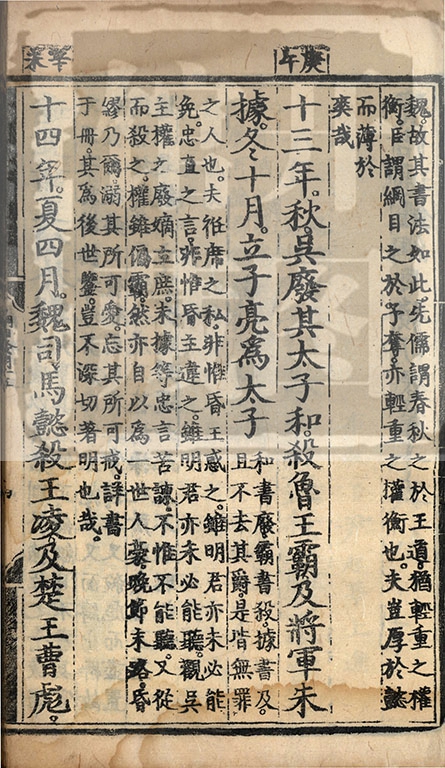 庚午
辛未
魏故其書法如此先儒謂春秋之於王道猶輕重之權
衡臣謂綱目之於子奪亦輕重之權衡也夫豈厚於懿
而薄於
爽哉
十三年。秋。吳廢其太子和殺魯王霸及將軍朱
據。冬十月。立子亮爲太子
和書廢霸書殺據書及
且不去其爵是皆無罪
之人也。夫袵席之私。非惟昏主惑之。雖明君亦未必能
免。忠直之言。非惟昏主違之。雖明君亦未必能聽。觀吳
主權之廢嫡立庶。朱據等忠言苦諫。不惟不能聽。又從
而殺之。權雖僞霸。然亦自以爲一世人豪。晚節末路。昏
繆乃爾。溺其所可愛。忘其所可戒。詳書
于冊。其爲後世鑒。豈不深切著明也哉。
十四年。夏四月。魏司馬懿殺王凌。及楚王曹彪。